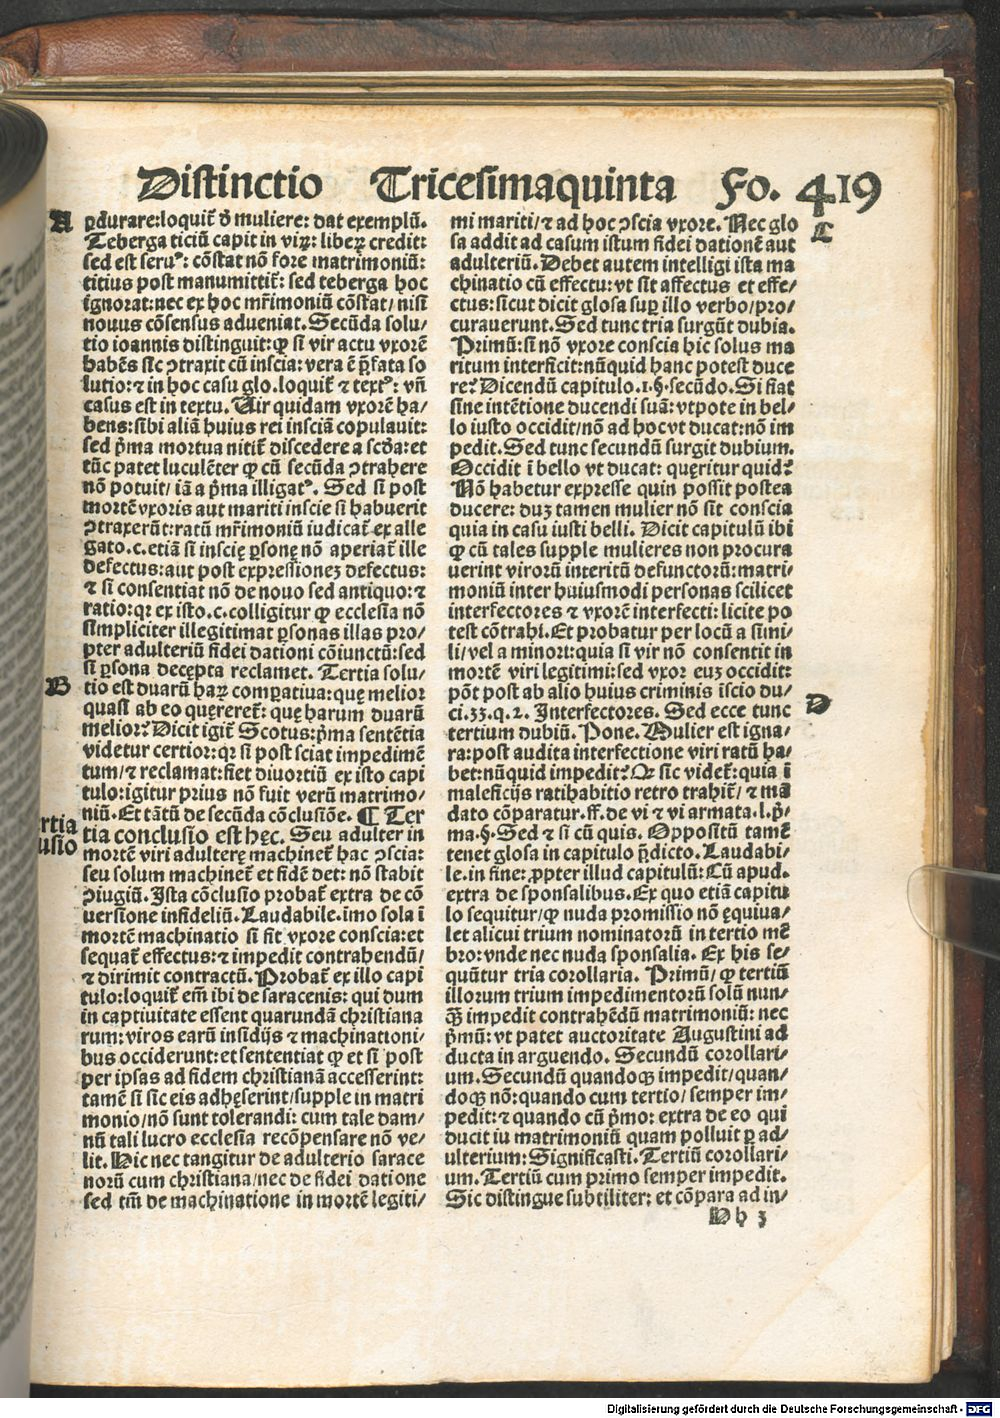 Distinctio Tricesimaquinta Fo. 419
A
ꝑdurare:loquit̃ ð muliere: dat exemplũ.
Teberga ticiũ capit in virꝝ: liberꝝ credit:
sed est seruꝰ: cõstat nõ fore matrimoniũ:
titius post manumittit̃: sed teberga hoc
ignorat:nec ex hoc mr̃imoniũ cõstat/ nisi
nouus cõsensus adueniat. Secũda solu/
tio ioannis distinguit: ꝙ si vir actu vxorẽ
habẽs sic ↄtraxit cũ inscia: vera ẽ p̃fata so
lutio:⁊ in hoc casu glo.loquit̃ ⁊ textꝰ: vñ
casus est in textu. Uir quidam vxorẽ ha/
bens: sibi aliã huius rei insciã copulauit:
sed p̃ma mortua nitit̃ discedere a scða: et
tũc patet luculẽter ꝙ cũ secũda ↄtrahere
nõ potuit/ iã a p̃ma illigatꝰ. Sed si post
mortẽ vxoris aut mariti inscie si habuerit
ↄtraxerũt: ratũ mr̃imoniũ iudicat̃ ex alle
gato.c.etiã si inscię ꝑsonę nõ aperiat̃ ille
defectus: aut post expressioneꝫ defectus:
⁊ si consentiat nõ de nouo sed antiquo: ⁊
ratio: qꝛ ex isto.c.colligitur ꝙ ecclesia nõ
simpliciter illegitimat ꝑsonas illas pro/
pter adulteriũ fidei dationi cõiunctũ: sed
si ꝑsona decępta reclamet. Tertia solu/
B
tio est duarũ harꝝ comꝑatiua: quę melior
quasi ab eo quęreret̃: quę harum duarũ
melior? Dicit igit̃ Scotus: p̃ma sentẽtia
videtur certior: qꝛ si post sciat impedimẽ
tum/⁊ reclamat: fiet diuortiũ ex isto capi
tulo: igitur prius nõ fuit verũ matrimo/
niũ. Et tãtũ de secũda cõclusiõe. ¶ Ter
rtia
usio
tia conclusio est hęc. Seu adulter in
mortẽ viri adulterę machinet̃ hac ↄscia:
seu solum machinet̃ et fidẽ det: nõ stabit
ↄiugiũ. Ista cõclusio probat̃ extra de cõ
uersione infideliũ. Laudabile. imo sola ĩ
mortẽ machinatio si fit vxore conscia: et
sequat̃ effectus: ⁊ impedit contrahendũ/
⁊ dirimit contractũ. Probat̃ ex illo capi
tulo: loquit̃ em̃ ibi de saracenis: qui dum
in captiuitate essent quarundã christiana
rum: viros earũ insidijs ⁊ machinationi/
bus occiderunt: et sententiat ꝙ et si post
per ipsas ad fidem christianã accesserint:
tamẽ si sic eis adhęserint/supple in matri
monio/nõ sunt tolerandi: cum tale dam/
nũ tali lucro ecclesia recõpensare nõ ve/
lit. Hic nec tangitur de adulterio sarace
norũ cum christiana/nec de fidei datione
sed tm̃ de machinatione in mortẽ legiti/
mi mariti/⁊ ad hoc ↄscia vxore. Nec glo
C
sa addit ad casum istum fidei dationẽ aut
adulteriũ. Debet autem intelligi ista ma
chinatio cũ effectu: vt sit affectus et effe/
ctus: sicut dicit glosa suꝑ illo verbo/pro/
curauerunt. Sed tunc tria surgũt dubia.
Primũ: si nõ vxore conscia hic solus ma
ritum interficit: nũquid hanc potest duce
re? Dicendũ capitulo.1.§.secũdo. Si fiat
sine intẽtione ducendi suã: vtpote in bel/
lo iusto occidit/nõ ad hoc vt ducat: nõ im
pedit. Sed tunc secundũ surgit dubium.
Occidit ĩ bello vt ducat: quęritur quid?
Nõ habetur expresse quin possit postea
ducere: duꝫ tamen mulier nõ sit conscia
quia in casu iusti belli. Dicit capitulũ ibi
ꝙ cũ tales supple mulieres non procura
uerint virorũ interitũ defunctorũ: matri/
moniũ inter huiusmodi personas scilicet
interfectores ⁊ vxorẽ interfecti: licite po
test cõtrahi. Et probatur per locũ a simi/
li/vel a minori: quia si vir nõ consentit in
mortẽ viri legitimi: sed vxor euꝫ occidit:
põt post ab alio huius criminis ĩscio du/
D
ci.33.q.2. Interfectores. Sed ecce tunc
tertium dubiũ. Pone. Mulier est igna/
ra: post audita interfectione viri ratũ ha/
bet: nũquid impedit? Qꝛ sic videt̃: quia ĩ
maleficijs ratihabitio retro trahit̃/ ⁊ mã
dato cõparatur.ff.de vi ⁊ vi armata.l.p̃/
ma.§. Sed ⁊ si cũ quis. Oppositũ tamẽ
tenet glosa in capitulo p̃dicto. Laudabi/
le.in fine: ꝓpter illud capitulũ: Cũ apud.
extra de sponsalibus. Ex quo etiã capitu
lo sequitur/ꝙ nuda promissio nõ ęquiua/
let alicui trium nominatorũ in tertio mẽ
bro: vnde nec nuda sponsalia. Ex his se/
quũtur tria corollaria. Primũ/ ꝙ tertiũ
illorum trium impedimentorũ solũ nun/
ꝗ̃ impedit contrahẽdũ matrimoniũ: nec
p̃mũ: vt patet auctoritate Augustini ad
ducta in arguendo. Secundũ corollari/
um. Secundũ quandoqꝫ impedit/quan/
doqꝫ nõ: quando cum tertio/ semper im/
pedit: ⁊ quando cũ p̃mo: extra de eo qui
ducit iu matrimoniũ quam polluit ꝑ ad/
ulterium: Significasti. Tertiũ corollari/
um. Tertiũ cum primo semper impedit.
Sic distingue subtiliter: et cõpara ad in/
Dh 3
Digitalisierung gefördert durch die Deutsche Forschungsgemeinschaft - DFG